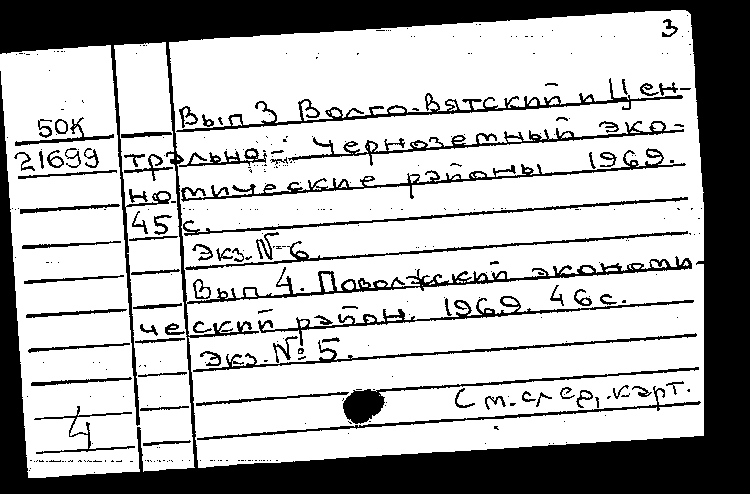 3
Вып 3 Волго-Вятский и Цен-
50К
21699 трально- Черноземный эко-
номические районы 1969.
45 с.
Экз. № 6.
Вып. 4. Поволжский экономи-
ческий район. 1969. 46 с.
Экз. № 5.
См. след. карт.
4